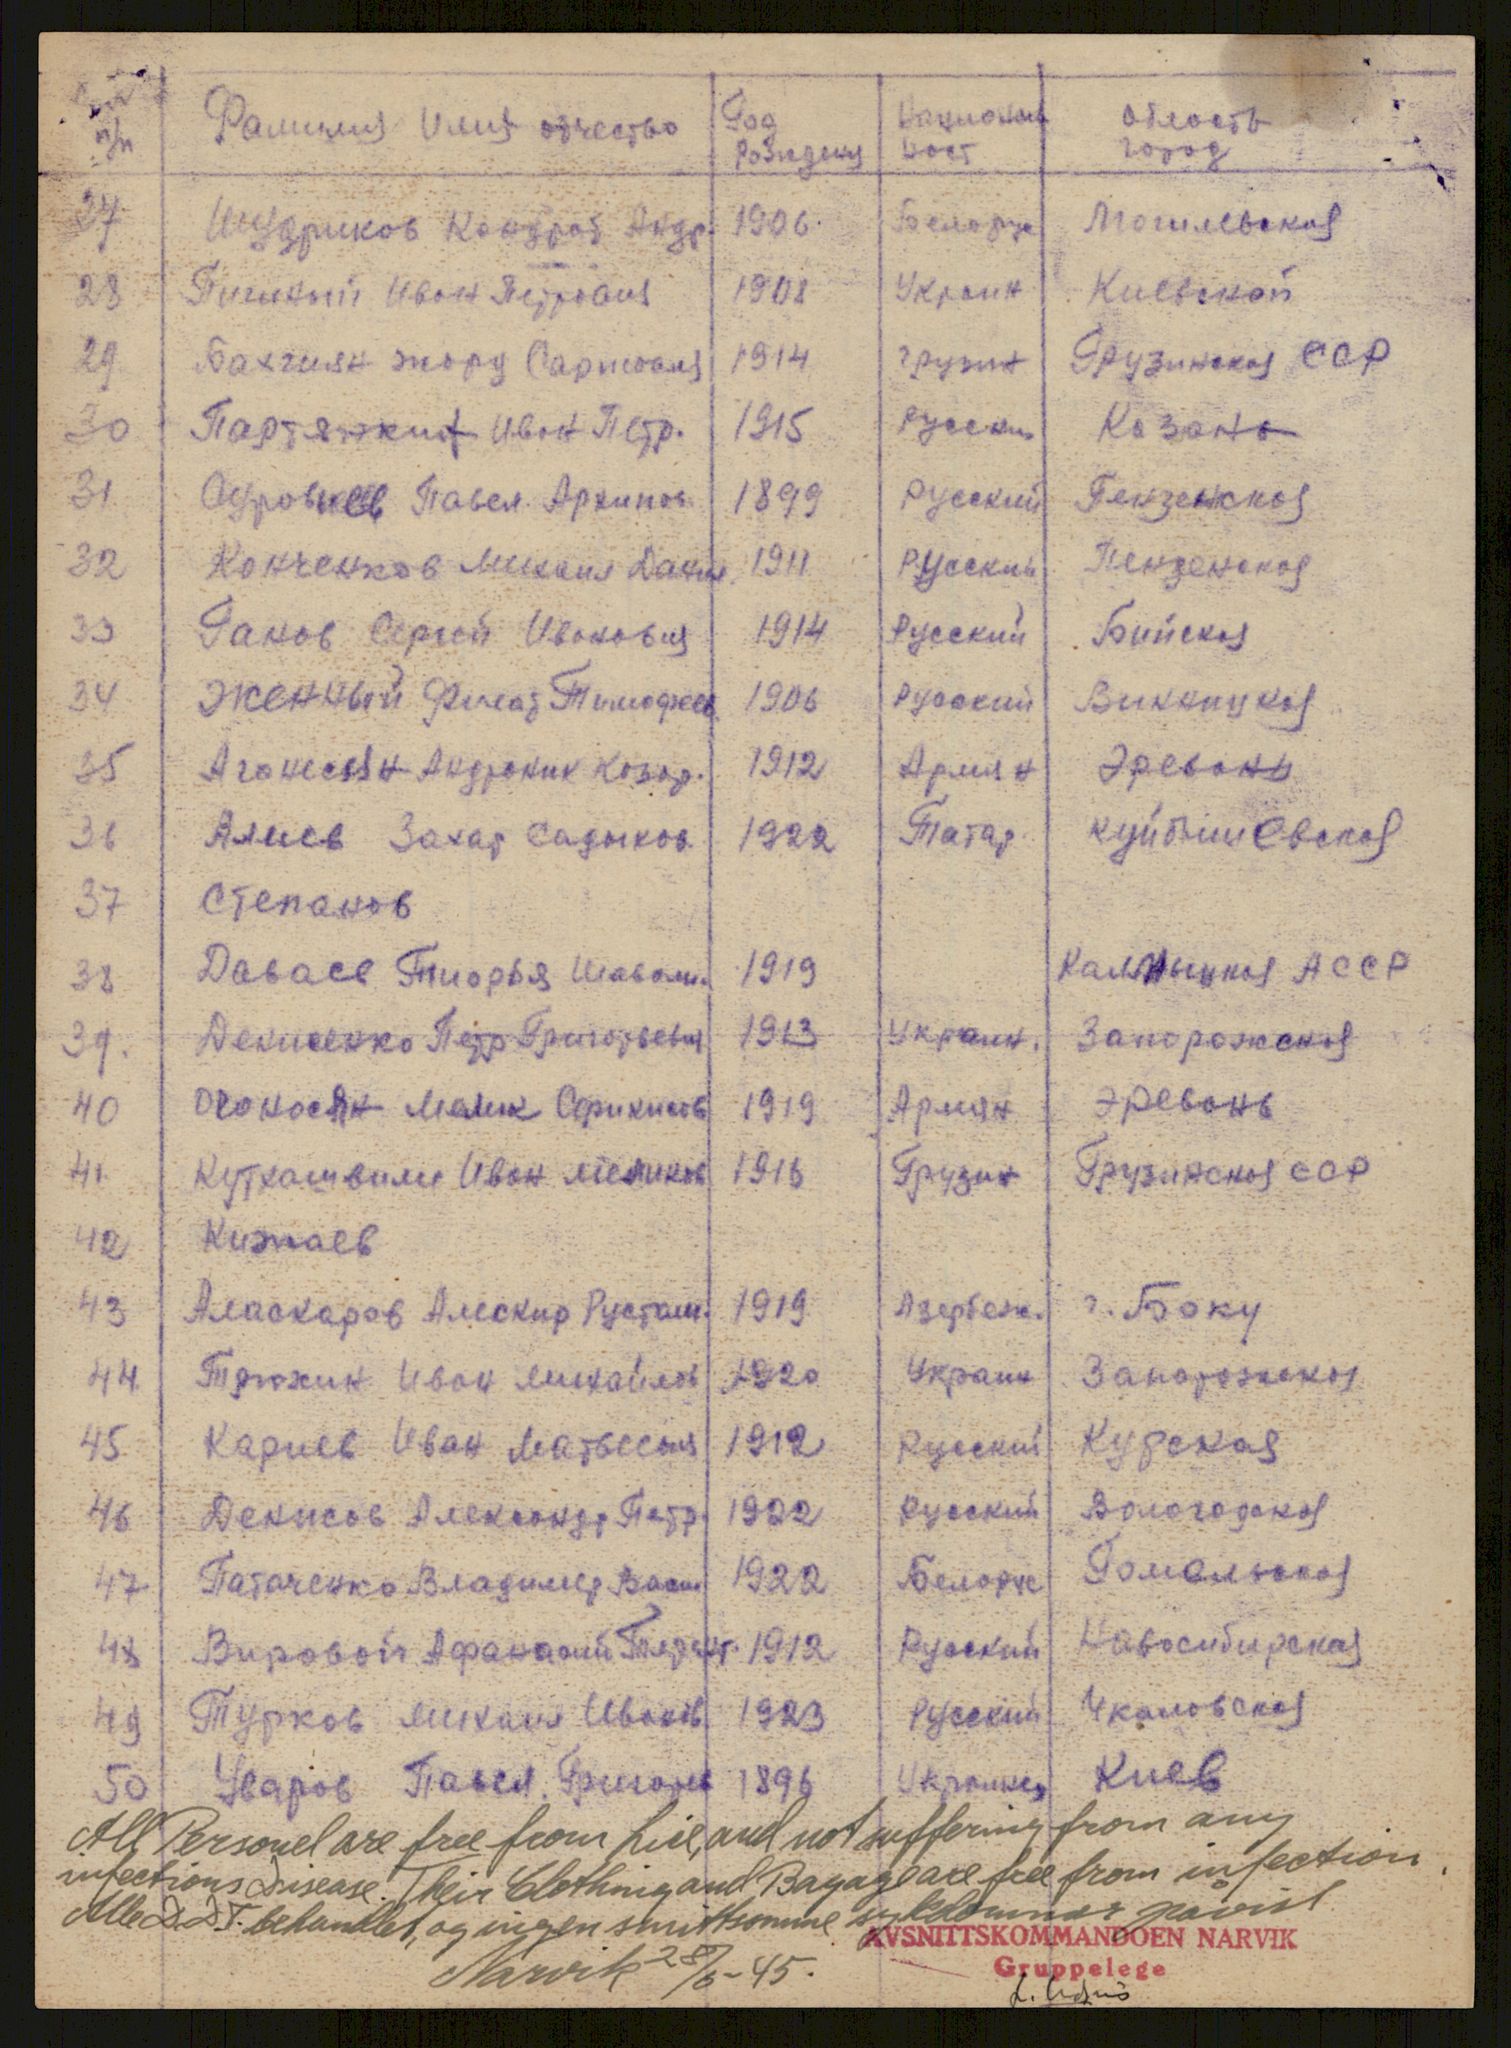 п/п Фамилия Имя отчество Год рождения Националь ност область город
27 Кондрат Андр. 1906. Белорус Могилевская
28 Иван 1908 Украин Киевской
29 Бахчиян жору 1914 грузин Грузинская ССР
30 Партянкин Иван Петр. 1915 Русский Казань
31 Павел Архипов. 1899 Русский Пензенская
32 Конченков Михаил Данил. 1911 Русский Пензенская
33 Ганов Сергей 1914 Русский Бийская
34 Женный Тимофеев. 1906 Русский Винницкая
35 Аганесян Андроник 1912 Армян Эревань
36 Алиев Захар Садыков. 1922 Татар куйбышевская
37 Степанов
38 Даваев 1919 Калмыцкая АССР
39. Денисенко Петр 1913 Украин. Запорожская
40 Оганосян Мелик 1919 Армян Эревань
41. Иван Меликов Грузин Грузинская ССР
42 Кижаев
43 Аласкаров Алескир Рустам. 1919 г. Баку
44 Иван Михайлов 1920 Украин Запорожская
45 Кариев Иван 1912 Русский Курская
46 Денисов Александр Петр. 1922 Русский Вологодская
47 Патаченко Владимир Васил 1922 Белорус Гомельская
48 Вировой Афанасий 1912 Русский Новосибирская
49 Турков Михаил Иванов. 1923 Русский Чкаловская
50 Уваров Павел. Григорьев 1896 Украинец Киев
All Personel are free from lice, and not suffering from any
infections Disease. Their Clothing and Bagage are free from infection.
Alle D.D.T. behandlet, og ingen smittsomme sykdommer påvist
Narvik 28/6-45.
AVSNITTSKOMMANDOEN NARVIK
Gruppelege